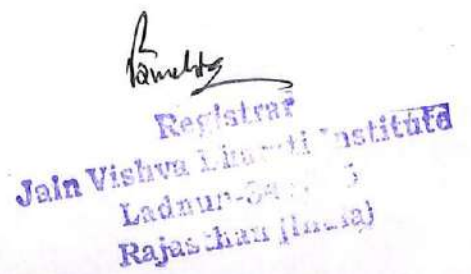 Registrar
Jain Vishva Bharati Institute
Ladnun-34
Rajasthan (India)